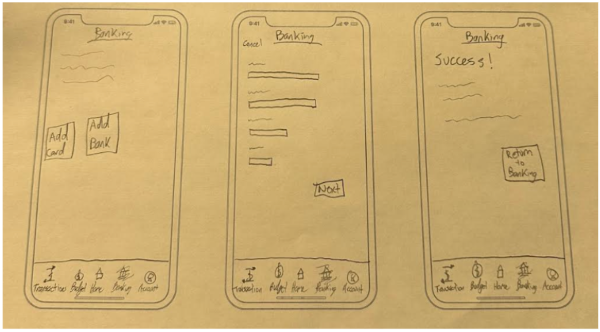 9:41
Banking
Add
Card
Add
Bank
Transaction Budget Home Banking Account
9:41
Banking
Cancel
Next
Transaction Budget Home Banking Account
9:41
Banking
Success!
Return
to
Banking
Transaction Budget Home Banking Account